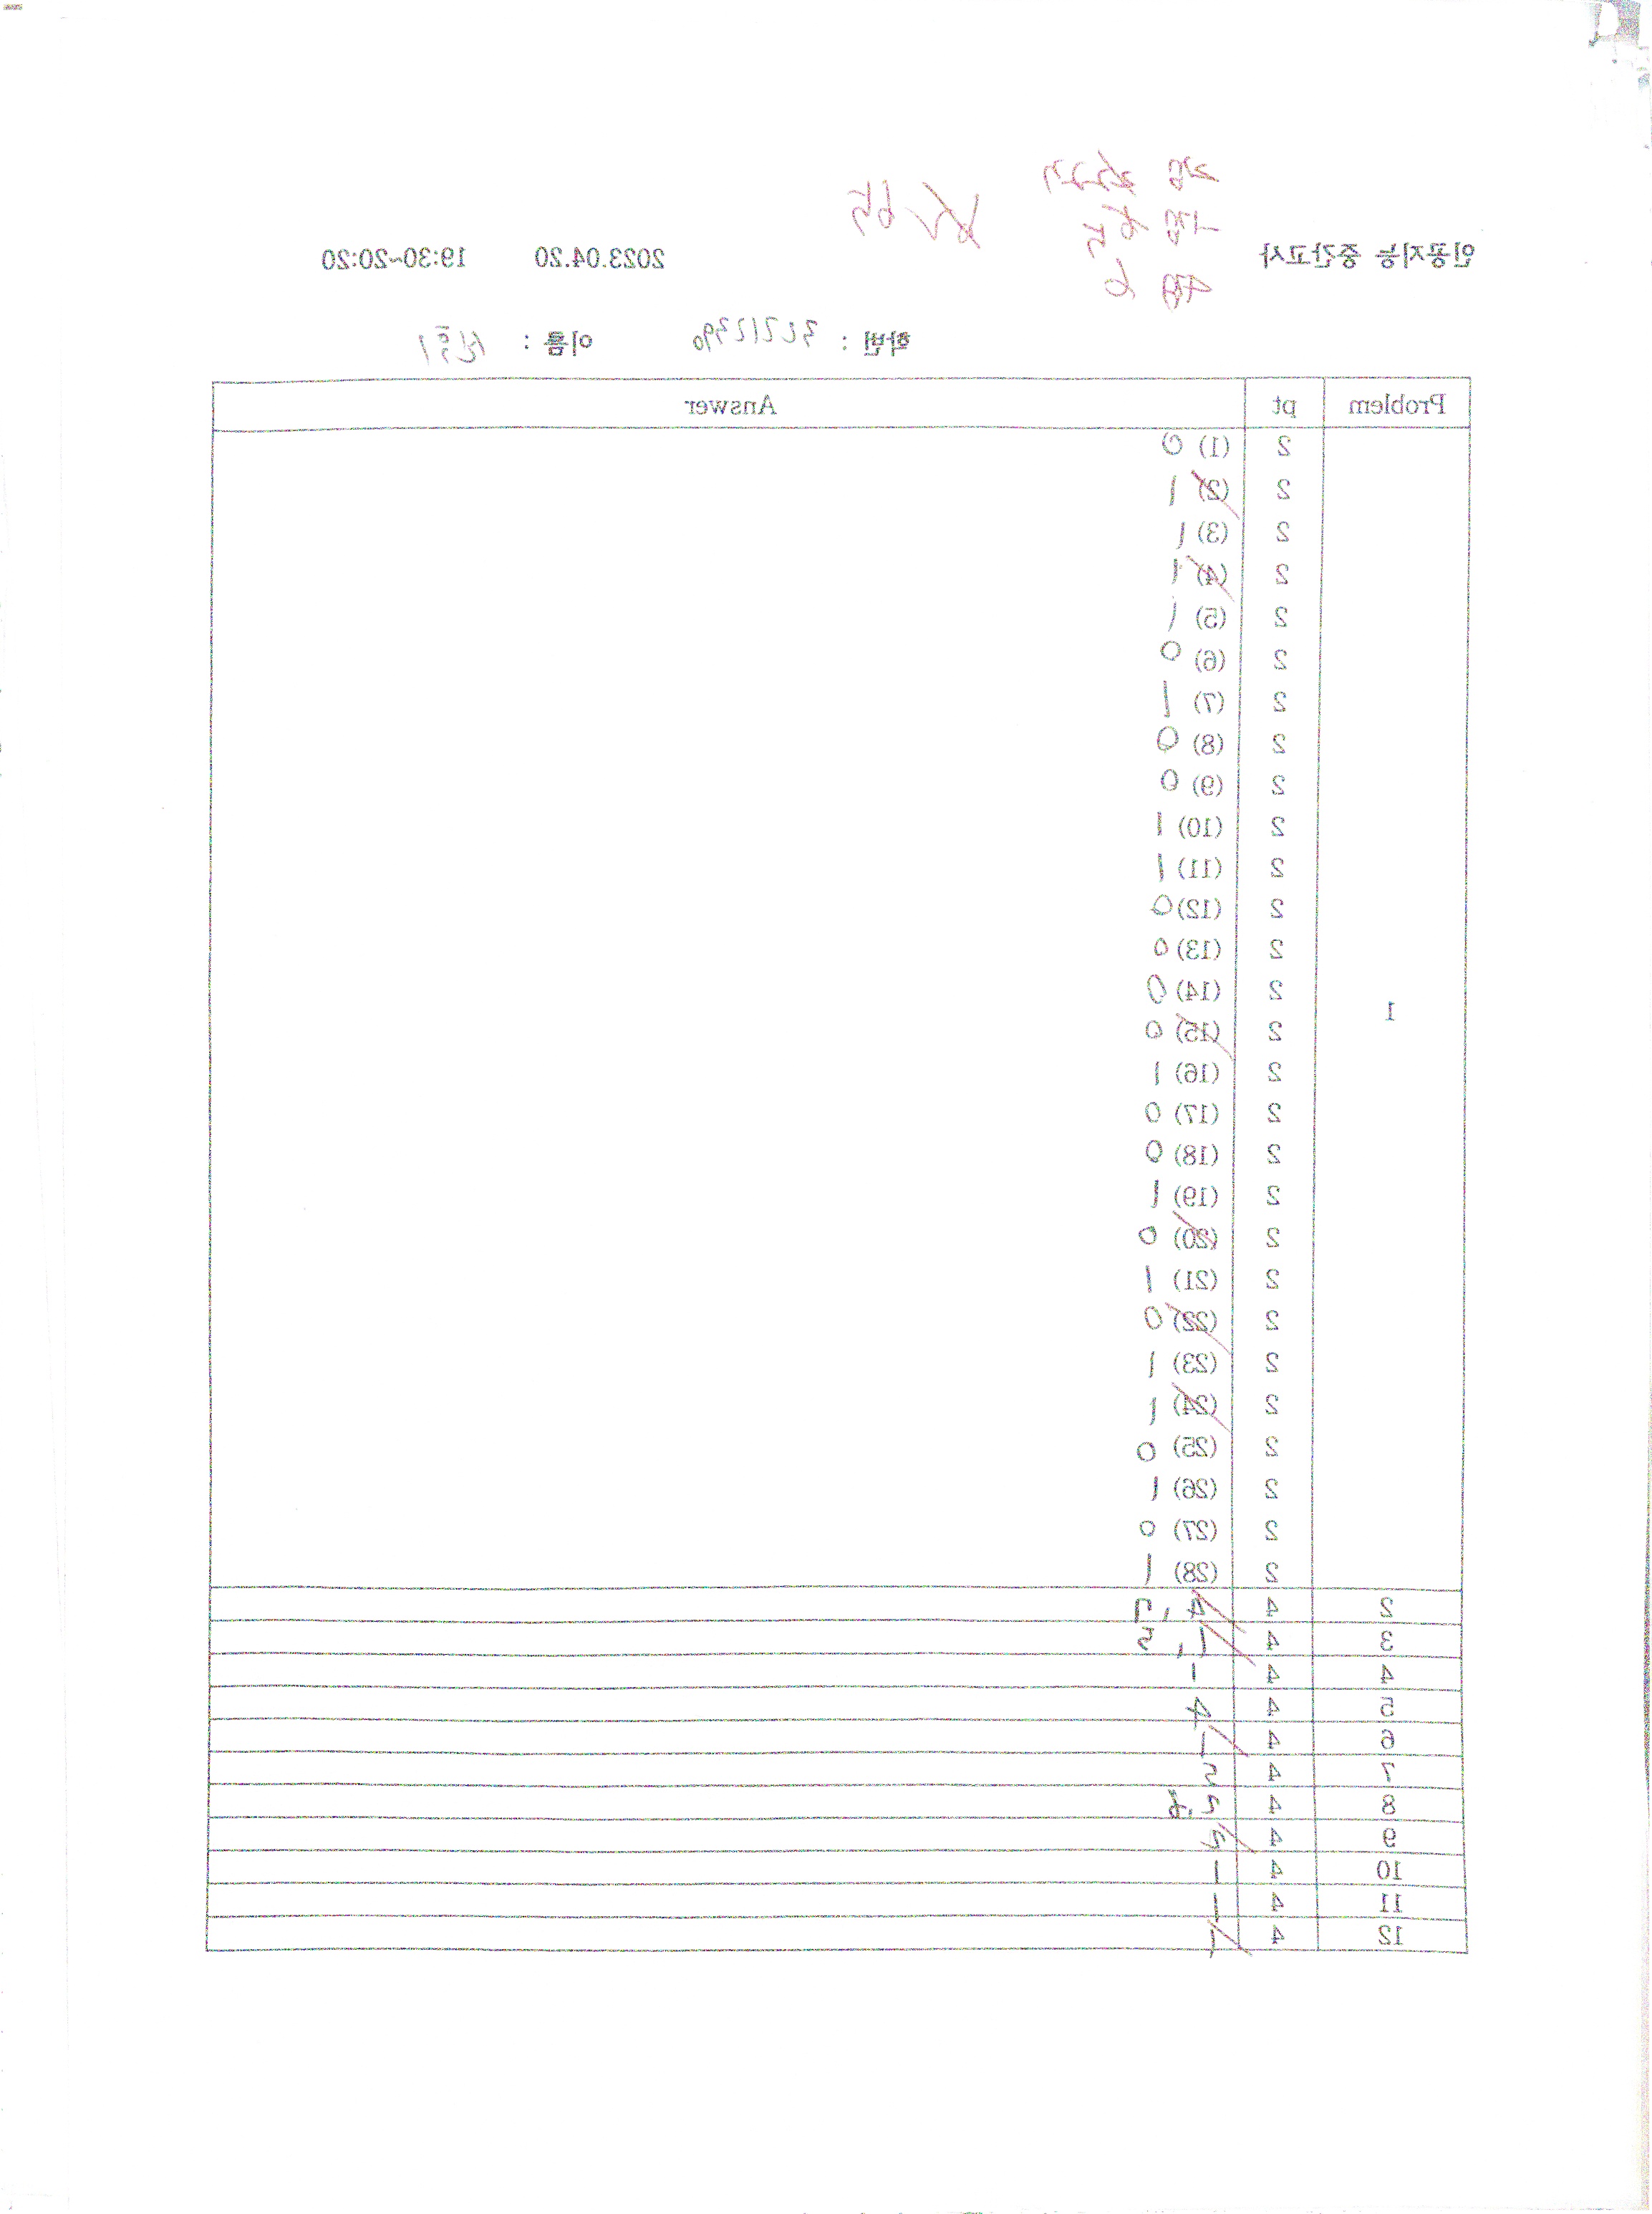 인공지능 중간고사 2023.04.20 19:30~20:20
학번 : 이름 :
Problem pt Answer
1
2 (1) 0
2 (2) 1
2 (3) 1
2 (4) 1
2 (5) 1
2 (6) 0
2 (7) 1
2 (8) 0
2 (9) 0
2 (10) 1
2 (11) 1
2 (12) 0
2 (13) 0
2 (14) 0
2 (15) 0
2 (16) 1
2 (17) 0
2 (18) 0
2 (19) 1
2 (20) 0
2 (21) 1
2 (22) 0
2 (23) 1
2 (24) 1
2 (25) 0
2 (26) 1
2 (27) 0
2 (28) 1
2 4 4,
3 4 1, 5
4 4 1
5 4 4
6 4 1
7 4
8 4
9 4
10 4 1
11 4 1
12 4 1